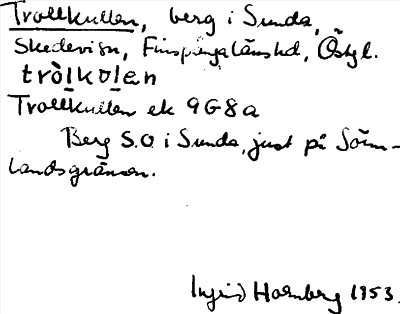 Trollkullen, berg i Sunda,
Skedevi sn, Finspånga länshd, Östgl.
tròlkolen
Trollkullen ek 9G8a
Berg S.O i Sunda, just på Söm-
landsgränsen.
Ingrid Hornberg 1953.